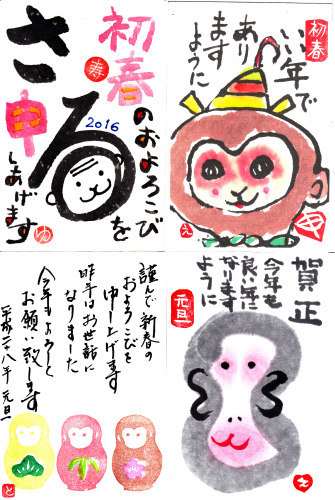 初春のおよろこびを
寿
さる
2016
申しあげます
ゆ
初春
いい年で
あり
ます
ように
え
申
謹んで新春の
およろこびを
申し上げます
昨年はお世話に
なりました
今年もよろしく
お願い致します
平成二十八年 元旦
と
賀正
今年も
良い年に
なります
ように
元旦
え